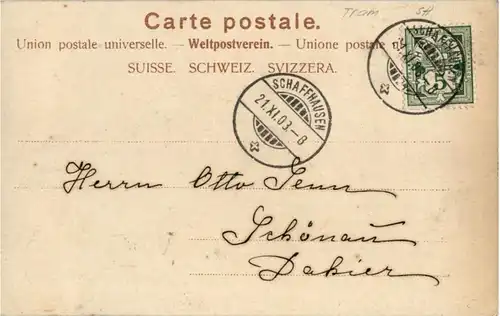 Carte postale.
Tram SH
Union postale universelle. — Weltpostverein. — Unione postale
SUISSE. SCHWEIZ. SVIZZERA.
SCHAFFHAUSEN
21.XI.03.-8
5
Herrn Otto Jenn
Schönau
Dahier